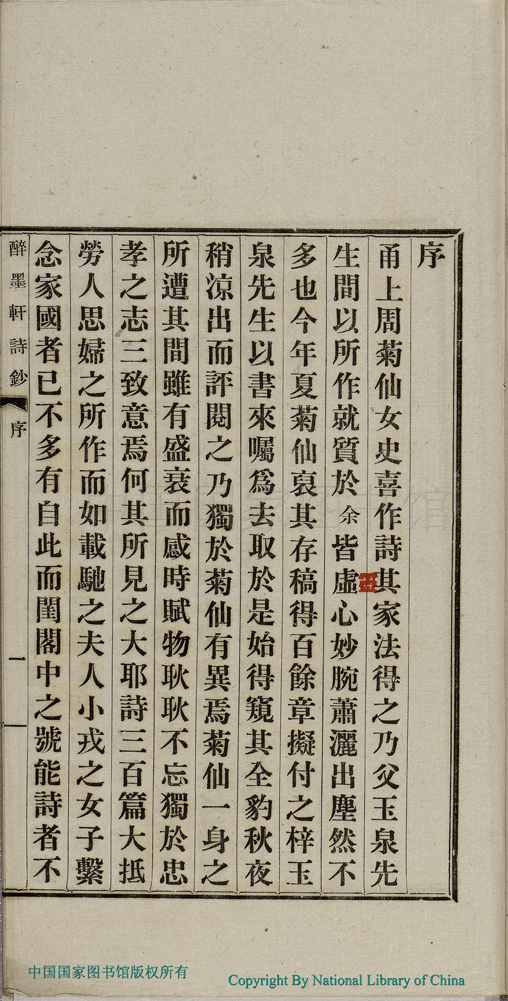 序
甬上周菊仙女史喜作詩其家法得之乃父玉泉先
生間以所作就質於余皆虛心妙腕蕭灑出塵然不
多也今年夏菊仙裒其存稿得百餘章擬付之梓玉
泉先生以書來囑爲去取於是始得窺其全豹秋夜
稍涼出而評閱之乃獨於菊仙有異焉菊仙一身之
所遭其間雖有盛衰而感時賦物耿耿不忘獨於忠
孝之志三致意焉何其所見之大耶詩三百篇大抵
勞人思婦之所作而如載馳之夫人小戎之女子繫
念家國者已不多有自此而閨閣中之號能詩者不
醉墨軒詩鈔 序 一
中国国家图书馆版权所有
Copyright By National Library of China